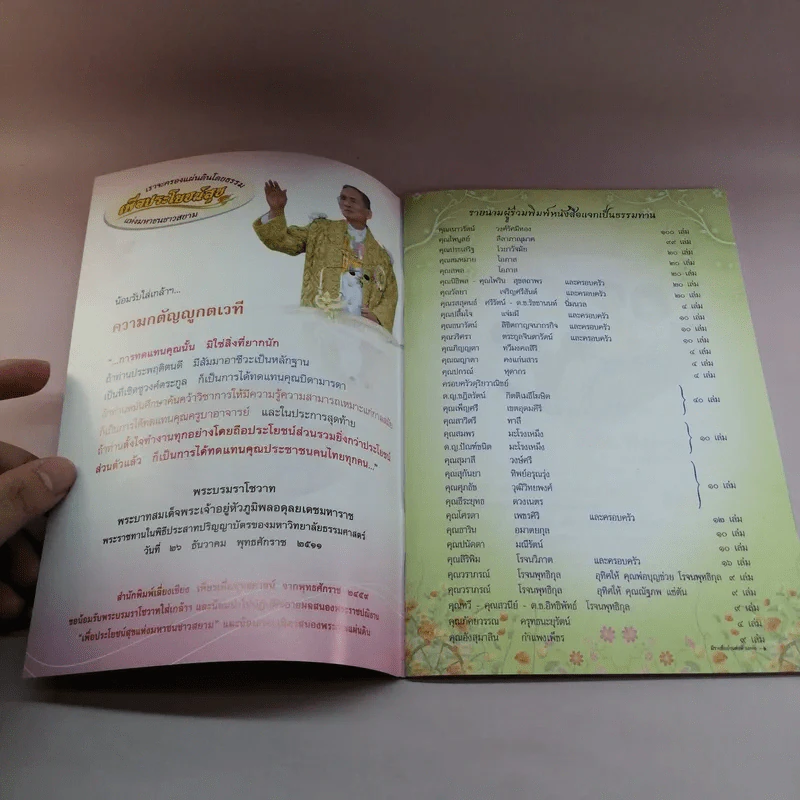 เราจะครองแผ่นดินโดยธรรม
เพื่อประโยชน์สุข
แห่งมหาชนชาวสยาม
น้อมรับใส่เกล้าฯ...
ความกตัญญูกตเวที
"...การทดแทนคุณนั้น มิใช่สิ่งที่ยากนัก
ถ้าท่านประพฤติตนดี มีสัมมาอาชีวะเป็นหลักฐาน
เป็นที่เชิดชูวงศ์ตระกูล ก็เป็นการได้ทดแทนคุณบิดามารดา
ถ้าท่านหมั่นศึกษาค้นคว้าวิชาการให้มีความรู้ความสามารถเหมาะแก่
ก็เป็นการได้ทดแทนคุณครูบาอาจารย์ และในประการสุดท้าย
ถ้าท่านตั้งใจทำงานทุกอย่างโดยถือประโยชน์ส่วนรวมยิ่งกว่าประโยชน์
ส่วนตัวแล้ว ก็เป็นการได้ทดแทนคุณประชาชนคนไทยทุกคน..."
พระบรมราโชวาท
พระบาทสมเด็จพระเจ้าอยู่หัวภูมิพลอดุลยเดชมหาราช
พระราชทานในพิธีประสาทปริญญาบัตรของมหาวิทยาลัยธรรมศาสตร์
วันที่ ๒๖ ธันวาคม พุทธศักราช ๒๕๑๑
สำนักพิมพ์เลี่ยงเชียง เพียรเพื่อพุทธศาสน์ จากพุทธศักราช
ขอน้อมรับพระบรมราโชวาทใส่เกล้าฯ และน้อมนำ
"เพื่อประโยชน์สุขแห่งมหาชนชาวสยาม"
รายนามผู้ร่วมพิมพ์หนังสือแจกเป็นธรรมทาน
คุณเนาวรัตน์ วงศ์รัศมีทอง ๑๐๐ เล่ม
คุณไพบูลย์ ลีลาภาณุมาศ ๔๙ เล่ม
คุณประเสริฐ โวการวิจัมัย ๒๐ เล่ม
คุณสมหมาย โอภาส ๒๐ เล่ม
คุณเสพล โอภาส ๒๐ เล่ม
คุณนิธิพล - คุณไพริน สุขสถาพร และครอบครัว ๒๐ เล่ม
คุณวัลยา เจริญศรีสันต์ และครอบครัว ๒๐ เล่ม
คุณสกุลนี ศรีรัตน์ - ด.ช.รัชชานนท์ นิ่มนวล ๔ เล่ม
คุณปลื้มใจ แจ่มมี และครอบครัว ๑๐ เล่ม
คุณธนารัตน์ ลิขิตกาญจนาภรกิจ และครอบครัว ๑๐ เล่ม
คุณวริศรา ตระกูลจินดารัตน์ และครอบครัว ๑๐ เล่ม
คุณภิญญดา ทวีมงคลสิริ ๔ เล่ม
คุณณญาดา คงแก่นสาร ๔ เล่ม
คุณปกรณ์ หุตากร ๔ เล่ม
ครอบครัวศุริยาวณิชย์
ด.ญ.ชฎิลรัตน์ กิตติเมธีโฆษิต
คุณเพ็ญศรี เขตอุดมศิริ ๔๐ เล่ม
คุณสาวิตรี ทาลี
คุณสมพร มะโรงเหมิ่ง
ด.ญ.ปัณฑ์ชนิต มะโรงเหมิ่ง ๑๐ เล่ม
คุณสุมาลี วงษ์ศรี
คุณสุกันยา ทิพย์อรุณรุ่ง
คุณศุภชัย วุฒิวิทยพงศ์ ๑๐ เล่ม
คุณธีระยุทธ ดวงเนตร
คุณโศรดา เพชรศิริ และครอบครัว ๑๒ เล่ม
คุณธาริน อมาตยกุล ๑๐ เล่ม
คุณปนัดดา มณีรัตน์ ๑๐ เล่ม
คุณสิริพิม โรจนวิภาต และครอบครัว ๑๖ เล่ม
คุณวราภรณ์ โรจนพุทธิกุล อุทิศให้ คุณพ่อบุญช่วย โรจนพุทธิกุล ๙ เล่ม
คุณวราภรณ์ โรจนพุทธิกุล อุทิศให้ คุณณัฐภพ แซ่ตัน ๙ เล่ม
คุณทวี - คุณสวนีย์ - ด.ช.อิทธิพัทธ์ โรจนพุทธิกุล ๙ เล่ม
คุณภัคยวรรณ ครุทธนะยุรัตน์ ๔ เล่ม
คุณอังศุมาลิน กำแพงเพ็ชร ๙ เล่ม